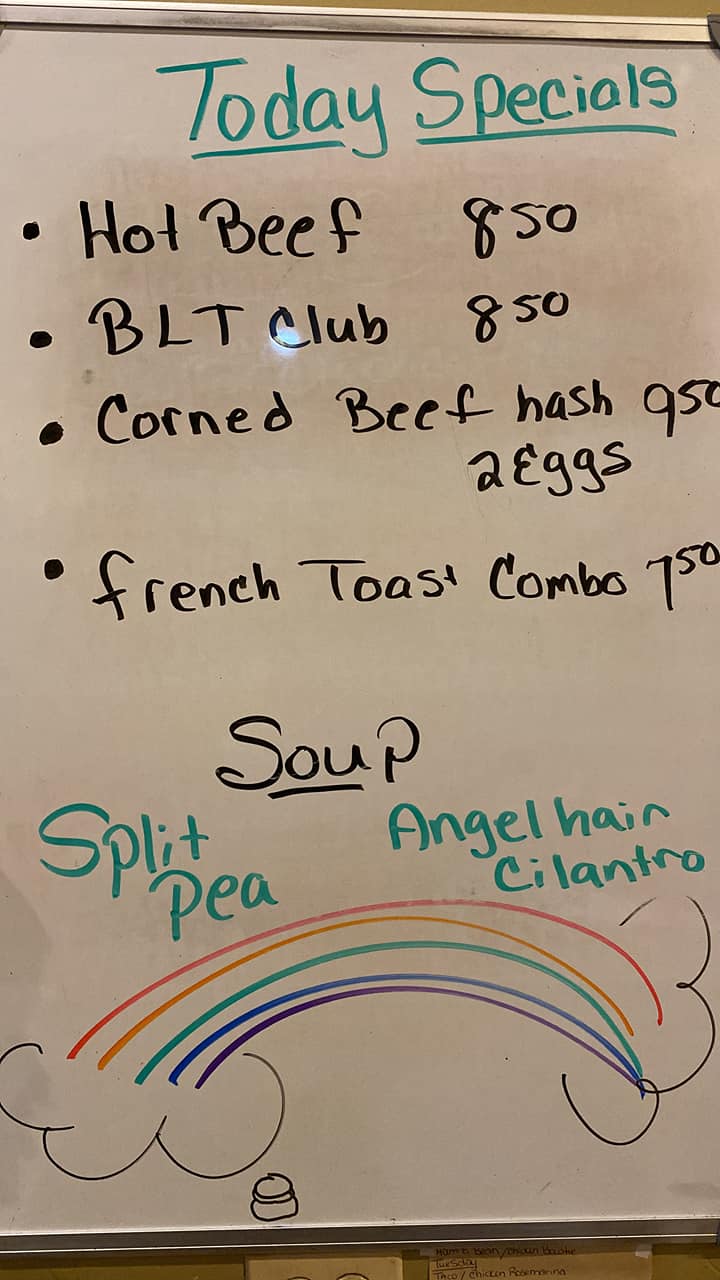 Today Specials
• Hot Beef 850
• BLT Club 850
• Corned Beef hash 950
2 Eggs
• french Toast Combo 750
Soup
Split
Pea
Angel hair
Cilantro
Tuesday
Taco / chicken